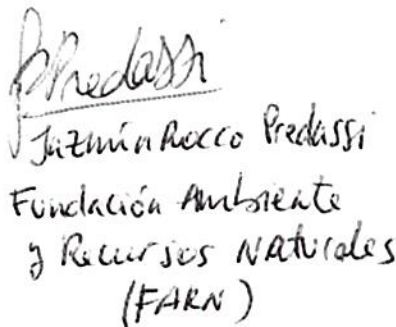 Predassi
Jazmín Rocco Predassi
Fundación Ambiente
y Recursos Naturales
(FARN)